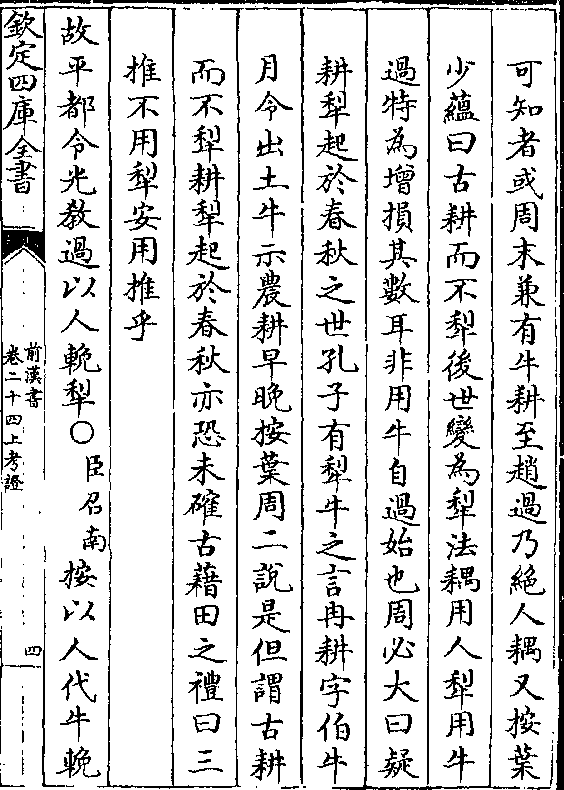 可知者或周末兼有牛耕至趙過乃絕人耦又按葉
少蘊曰古耕而不犁後世變為犁法耦用人犁用牛
過特為增損其數耳非用牛自過始也周必大曰疑
耕犁起於春秋之世孔子有犁牛之言冉耕字伯牛
月令出土牛示農耕早晚按葉周二說是但謂古耕
而不犁耕犁起於春秋亦恐未確古藉田之禮曰三
推不用犁安用推乎
故平都令光教過以人輓犁○臣召南按以人代牛輓
欽定四庫全書
前漢書
卷二十四上考證
四